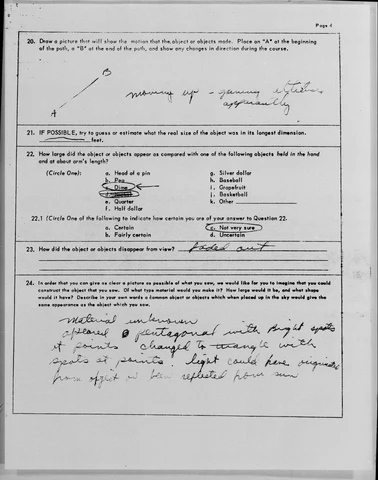 Page 4
20. Draw a picture that will show the motion that the object or objects made. Place an "A" at the beginning
of the path, a "B" at the end of the path, and show any changes in direction during the course.
B
moving up - gaining
A
21. IF POSSIBLE, try to guess or estimate what the real size of the object was in its longest dimension.
feet.
22. How large did the object or objects appear as compared with one of the following objects held in the hand
and at about arm's length?
(Circle One):
a. Head of a pin
b. Pea
c. Dime
e. Quarter
f. Half dollar
g. Silver dollar
h. Baseball
i. Grapefruit
j. Basketball
k. Other
22.1 (Circle One of the following to indicate how certain you are of your answer to Question 22.
a. Certain
b. Fairly certain
c. Not very sure
d. Uncertain
23. How did the object or objects disappear from view? faded out
24. In order that you can give as clear a picture as possible of what you saw, we would like for you to imagine that you could
construct the object that you saw. Of what type material would you make it? How large would it be, and what shape
would it have? Describe in your own words a common object or objects which when placed up in the sky would give the
same appearance as the object which you saw.
material unknown
appeared pentagonal with bright spots
at points changed to triangle with
spots at points. light could have originated
from object or been reflected from sun